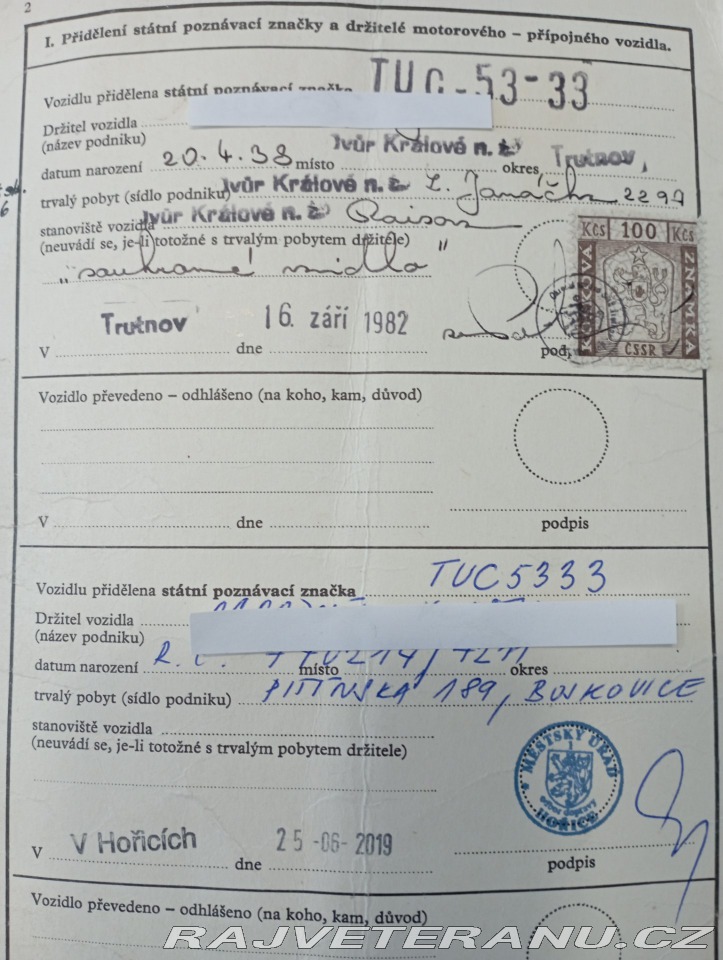 2
I. Přidělení státní poznávací značky a držitelé motorového – přípojného vozidla.
Vozidlu přidělena státní poznávací značka TUC-53-33
Držitel vozidla
(název podniku)
datum narození 20.4.38 místo Dvůr Králové n. L. okres Trutnov,
trvalý pobyt (sídlo podniku) Dvůr Králové n. L. L. Janáčka
stanoviště vozidla Dvůr Králové n. L.
(neuvádí se, je-li totožné s trvalým pobytem držitele)
"soukromé vozidlo"
Kčs 100 Kčs
KOLKOVÁ ZNÁMKA
ČSSR
V Trutnov dne 16. září 1982 pod.
Vozidlo převedeno – odhlášeno (na koho, kam, důvod)
V dne podpis
Vozidlu přidělena státní poznávací značka TUC5333
Držitel vozidla
(název podniku)
datum narození R.č. místo okres
trvalý pobyt (sídlo podniku) 189, BOSKOVICE
stanoviště vozidla
(neuvádí se, je-li totožné s trvalým pobytem držitele)
MĚSTSKÝ ÚŘAD
odbor dopravy
HOŘICE
V V Hořicích dne 25-06-2019 podpis
Vozidlo převedeno – odhlášeno (na koho, kam, důvod)
RAJVETERANU.CZ